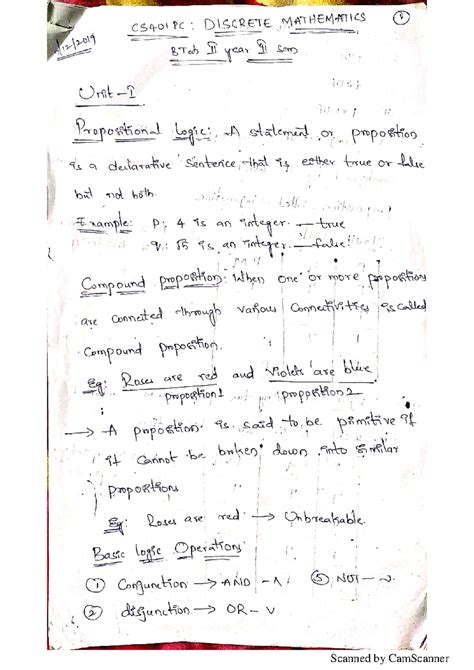 CS401PC: DISCRETE MATHEMATICS ①
/12/2019
BTech II year II sem
Unit-I
Propositional logic: A statement or proposition
is a declarative sentence that is either true or false
but not both.
Example: P: 4 is an integer. — true
q: √5 is an integer. — false
Compound proposition: When one or more propositions
are connected through various Connectivities is called
Compound proposition.
Eg: Roses are red and Violets are blue
proposition1 proposition2
→ A proposition is said to be pimitive if
it cannot be broken down into similar
propositions
Eg: Roses are red → Unbreakable.
Basic logic Operations
① Conjunction → AND - ∧ ③ NOT - ~
② disjunction → OR - ∨
Scanned by CamScanner